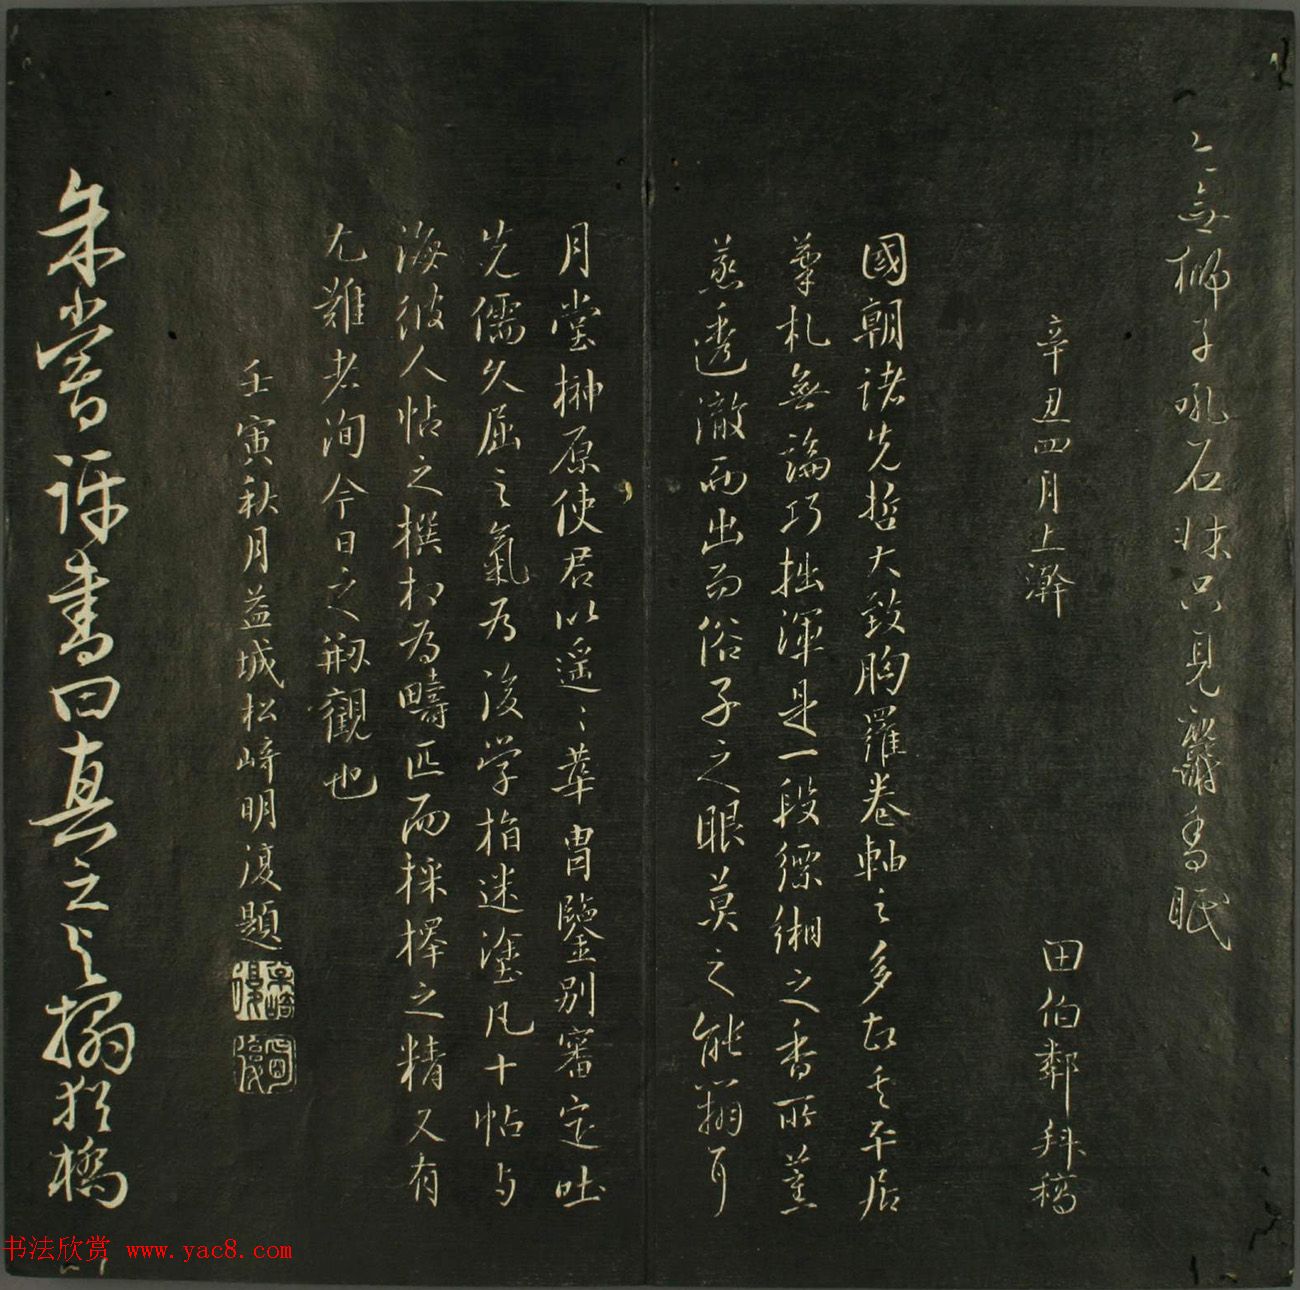 無獅子吼石牀只見麝香眠
辛丑四月上澣
田伯鄰拜稿
國朝諸先哲大致胸羅卷軸之多故其平居
筆札無論巧拙渾是一段縹緗之香所薰
蒸透澈而出而俗子之眼莫之能翳耳
月堂榊原使君以遥〻華胄鑒別審定吐
先儒久屈之氣為後学指迷塗凡十帖与
海彼人帖之撰相為疇匹而採擇之精又有
尤難者洵今日之翫觀也
壬寅秋月益城松﨑明復題
朱嘗評書曰真之与搨猶橋
书法欣赏 www.yac8.com